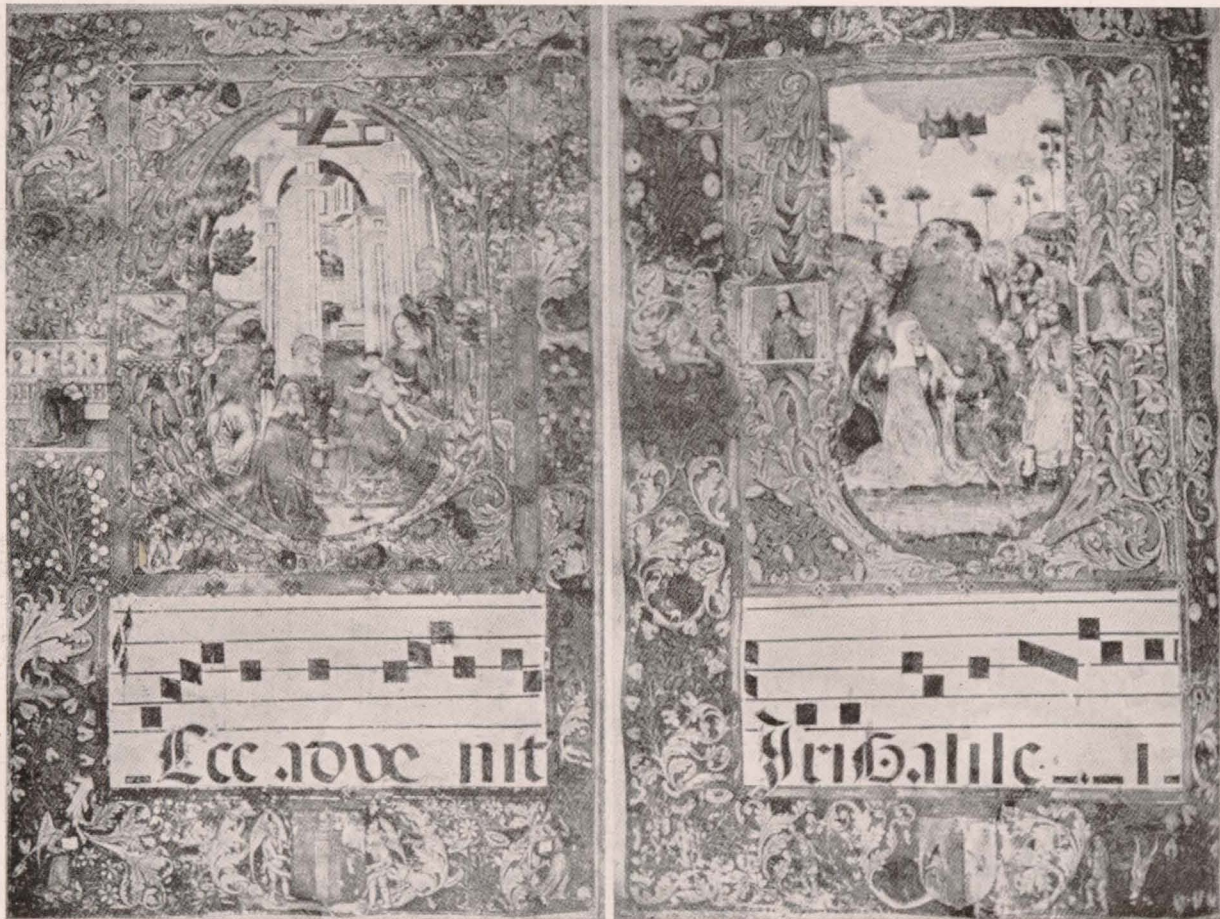 Ecc adve nit
IriGalile